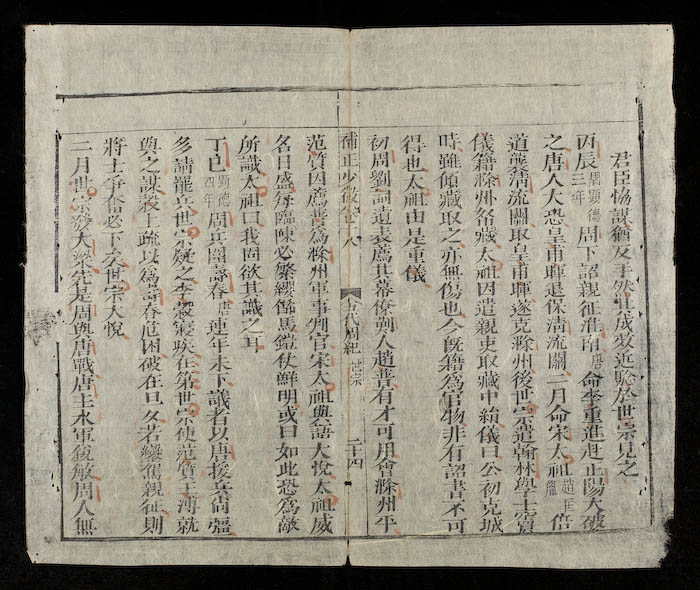 君臣協謀猶反手然其成效近驗於世宗見之
丙辰周顯德三年周下詔親征淮南唐命李重進赴正陽大破
之唐人大恐皇甫暉退保清流關二月命宋太祖趙匡胤倍
道襲清流關取皇甫暉遂克滁州後世宗遣翰林學士竇
儀籍滁州帑藏太祖因遣親吏取藏中絹儀曰公初克城
時雖傾藏取之亦無傷也今既籍爲官物非有詔書不可
得也太祖由是重儀
初周劉詞遺表薦其幕僚薊人趙普有才可用會滁州平
補正少微卷十八 五代周紀 世宗 二十四
范質因薦普爲滁州軍事判官宋太祖與語大悅太祖威
名日盛每臨陣必繁纓飾馬鎧仗鮮明或曰如此恐爲敵
所識太祖曰我固欲其識之耳
丁巳顯德四年周兵圍壽春唐連年未下議者以唐援兵尚彊
多請罷兵世宗疑之李穀寢疾在第世宗使范質王溥就
與之謀穀上疏以爲壽春危困破在旦夕若鑾駕親征則
將士爭奮必下矣世宗大悅
二月世宗發大梁先是周與唐戰唐主水軍銳敏周人無